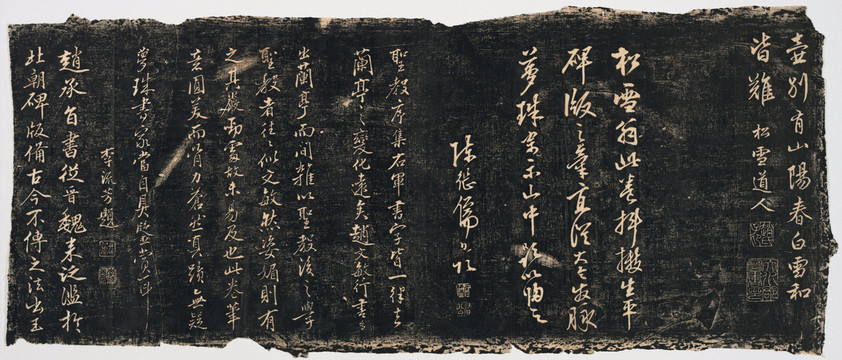 壺別有山陽春白雪和
皆難 松雪道人
松雪翁此卷抖擻生平
碑版之筆直從大令發脈
夢珠宗示山中題以歸之
陳繼儒
聖教序集右軍書字皆一徑去
蘭亭之變化遠矣趙文敏行書多
出蘭亭而間雜以聖教法之學
聖教者往往似文敏然姿媚則有
之其嚴勁處故未易及也此卷筆
意圓美而骨力蒼然真蹟無疑
夢珠書家當自具鑒賞耳
李流芳題
趙承旨書從晉魏來泛濫於
北朝碑版備古今不傳之法出王